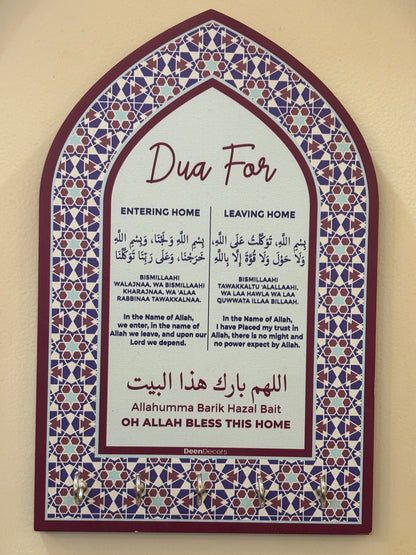 Dua For
ENTERING HOME
بِسْمِ اللَّهِ وَلَجْنَا، وَبِسْمِ اللَّهِ
خَرَجْنَا، وَعَلَى رَبِّنَا تَوَكَّلْنَا
BISMILLAAHI
WALAJNAA, WA BISMILLAAHI
KHARAJNAA, WA 'ALAA
RABBINAA TAWAKKALNAA.
In the Name of Allah,
we enter, in the name of
Allah we leave, and upon our
Lord we depend.
LEAVING HOME
بِسْمِ اللَّهِ، تَوَكَّلْتُ عَلَى اللَّهِ،
وَلَا حَوْلَ وَلَا قُوَّةَ إِلَّا بِاللَّهِ
BISMILLAAHI
TAWAKKALTU 'ALALLAAHI,
WA LAA HAWLA WA LAA
QUWWATA ILLAA BILLAAH.
In the Name of Allah,
I have Placed my trust in
Allah, there is no might and
no power expect by Allah.
اللهم بارك هذا البيت
Allahumma Barik Hazal Bait
OH ALLAH BLESS THIS HOME
DeenDecors